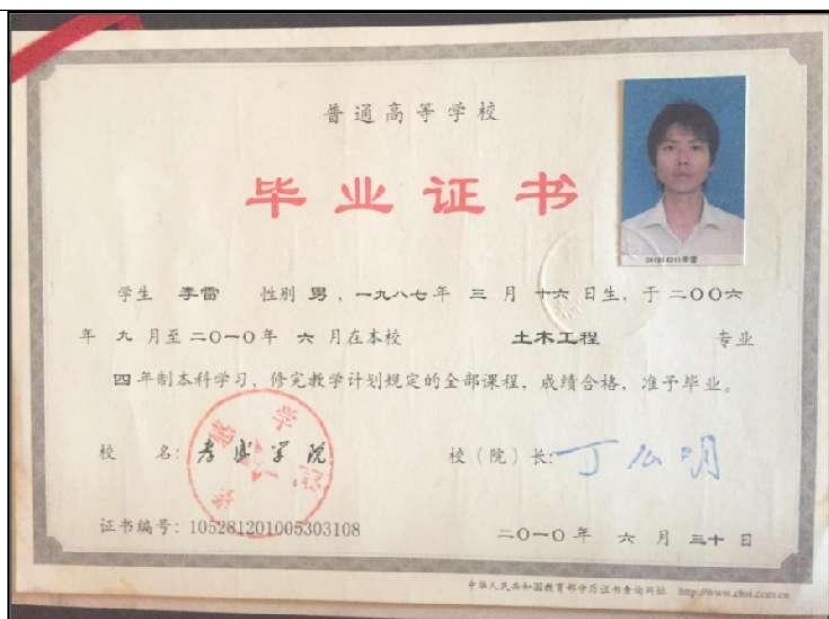 普通高等学校
毕业证书
学生 李雷 性别 男，一九八七年 三 月 十六 日生，于二〇〇六
年 九 月至二〇一〇年 六 月在本校 土木工程 专业
四 年制本科学习，修完教学计划规定的全部课程，成绩合格，准予毕业。
校 名：孝感学院 校（院）长：丁公明
证书编号：105281201005303108
二〇一〇年 六 月 三十 日
中华人民共和国教育部学历证书查询网址 http://www.chsi.com.cn